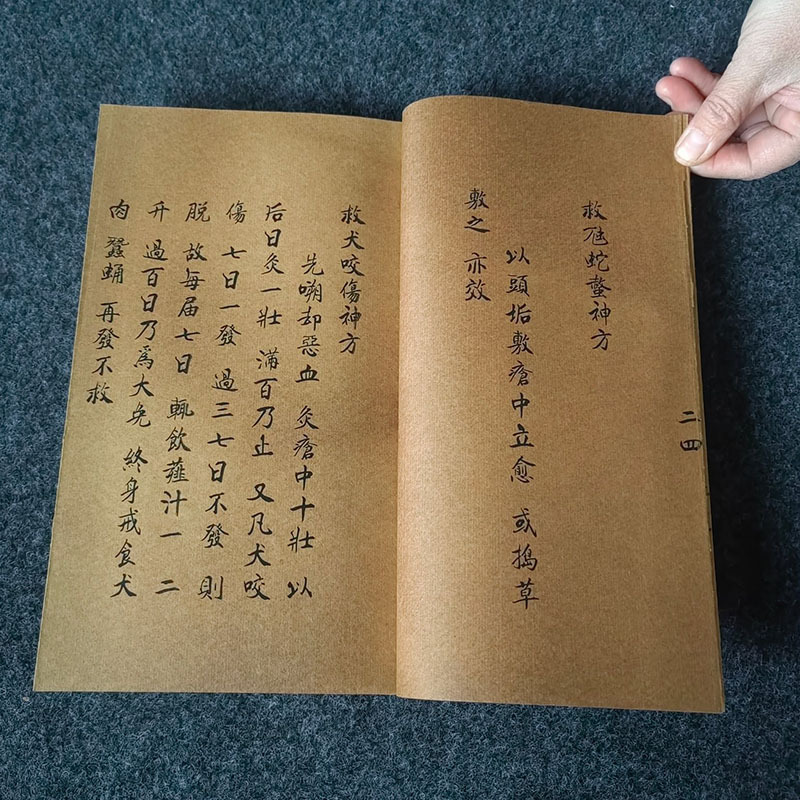 救虺蛇螫神方
以頭垢敷瘡中立愈 或搗草
敷之 亦效
二四
救犬咬傷神方
先嗍却惡血 灸瘡中十壯 以
后日灸一壯 滿百乃止 又凡犬咬
傷 七日一發 過三七日不發 則
脱 故每届七日 輒飲薤汁一二
升 過百日乃爲大免 終身戒食犬
肉 蠶蛹 再發不救